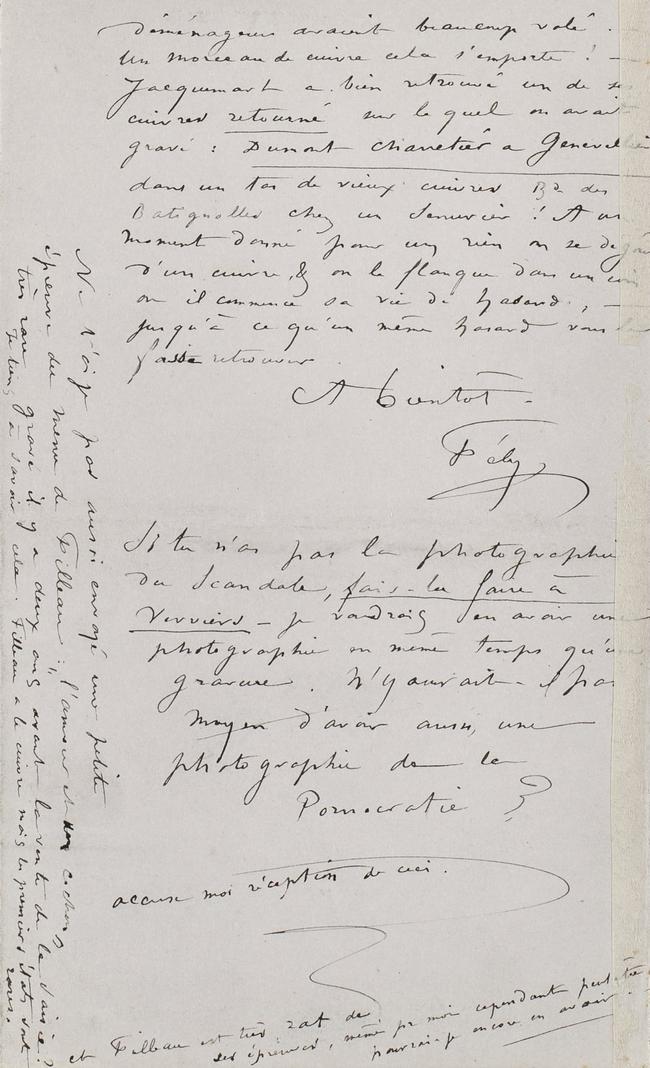 déménageurs avaient beaucoup volé.
Un morceau de cuivre cela s'emporte ! –
Jacquemart a bien retrouvé un de ses
cuivres retourné sur lequel on avait
gravé : Dumont charretier a Genevil
dans un tas de vieux cuivres Bd des
Batignolles chez un Serrurier ! A un
moment donné pour un rien on se dégoû
d'un cuivre, & on le flanque dans un coin
où il commence sa vie de hasard, –
jusqu'à ce qu'un même hasard vous
fasse retrouver.
A bientôt –
Fély
Si tu n'as pas la photographie
du Scandale, fais-la faire à
Verviers – je voudrais en avoir une
photographie en même temps qu'une
gravure. N'y aurait-il pas
moyen d'avoir aussi, une
photographie de la
Pornocratie ?
accuse moi réception de ceci.
Ne t'ai je pas aussi envoyé une petite
épreuve du menu de Filleau : "l'amour et cochons
très rare gravé il y a deux ans avant la vente de la saisie ?
Je tiens à savoir cela. Filleau a le cuivre mais les premiers états sont
rares.
et Filleau est très rat de
ses épreuves, même pr moi cependant peut-être
pourrai-je encore en avoir.